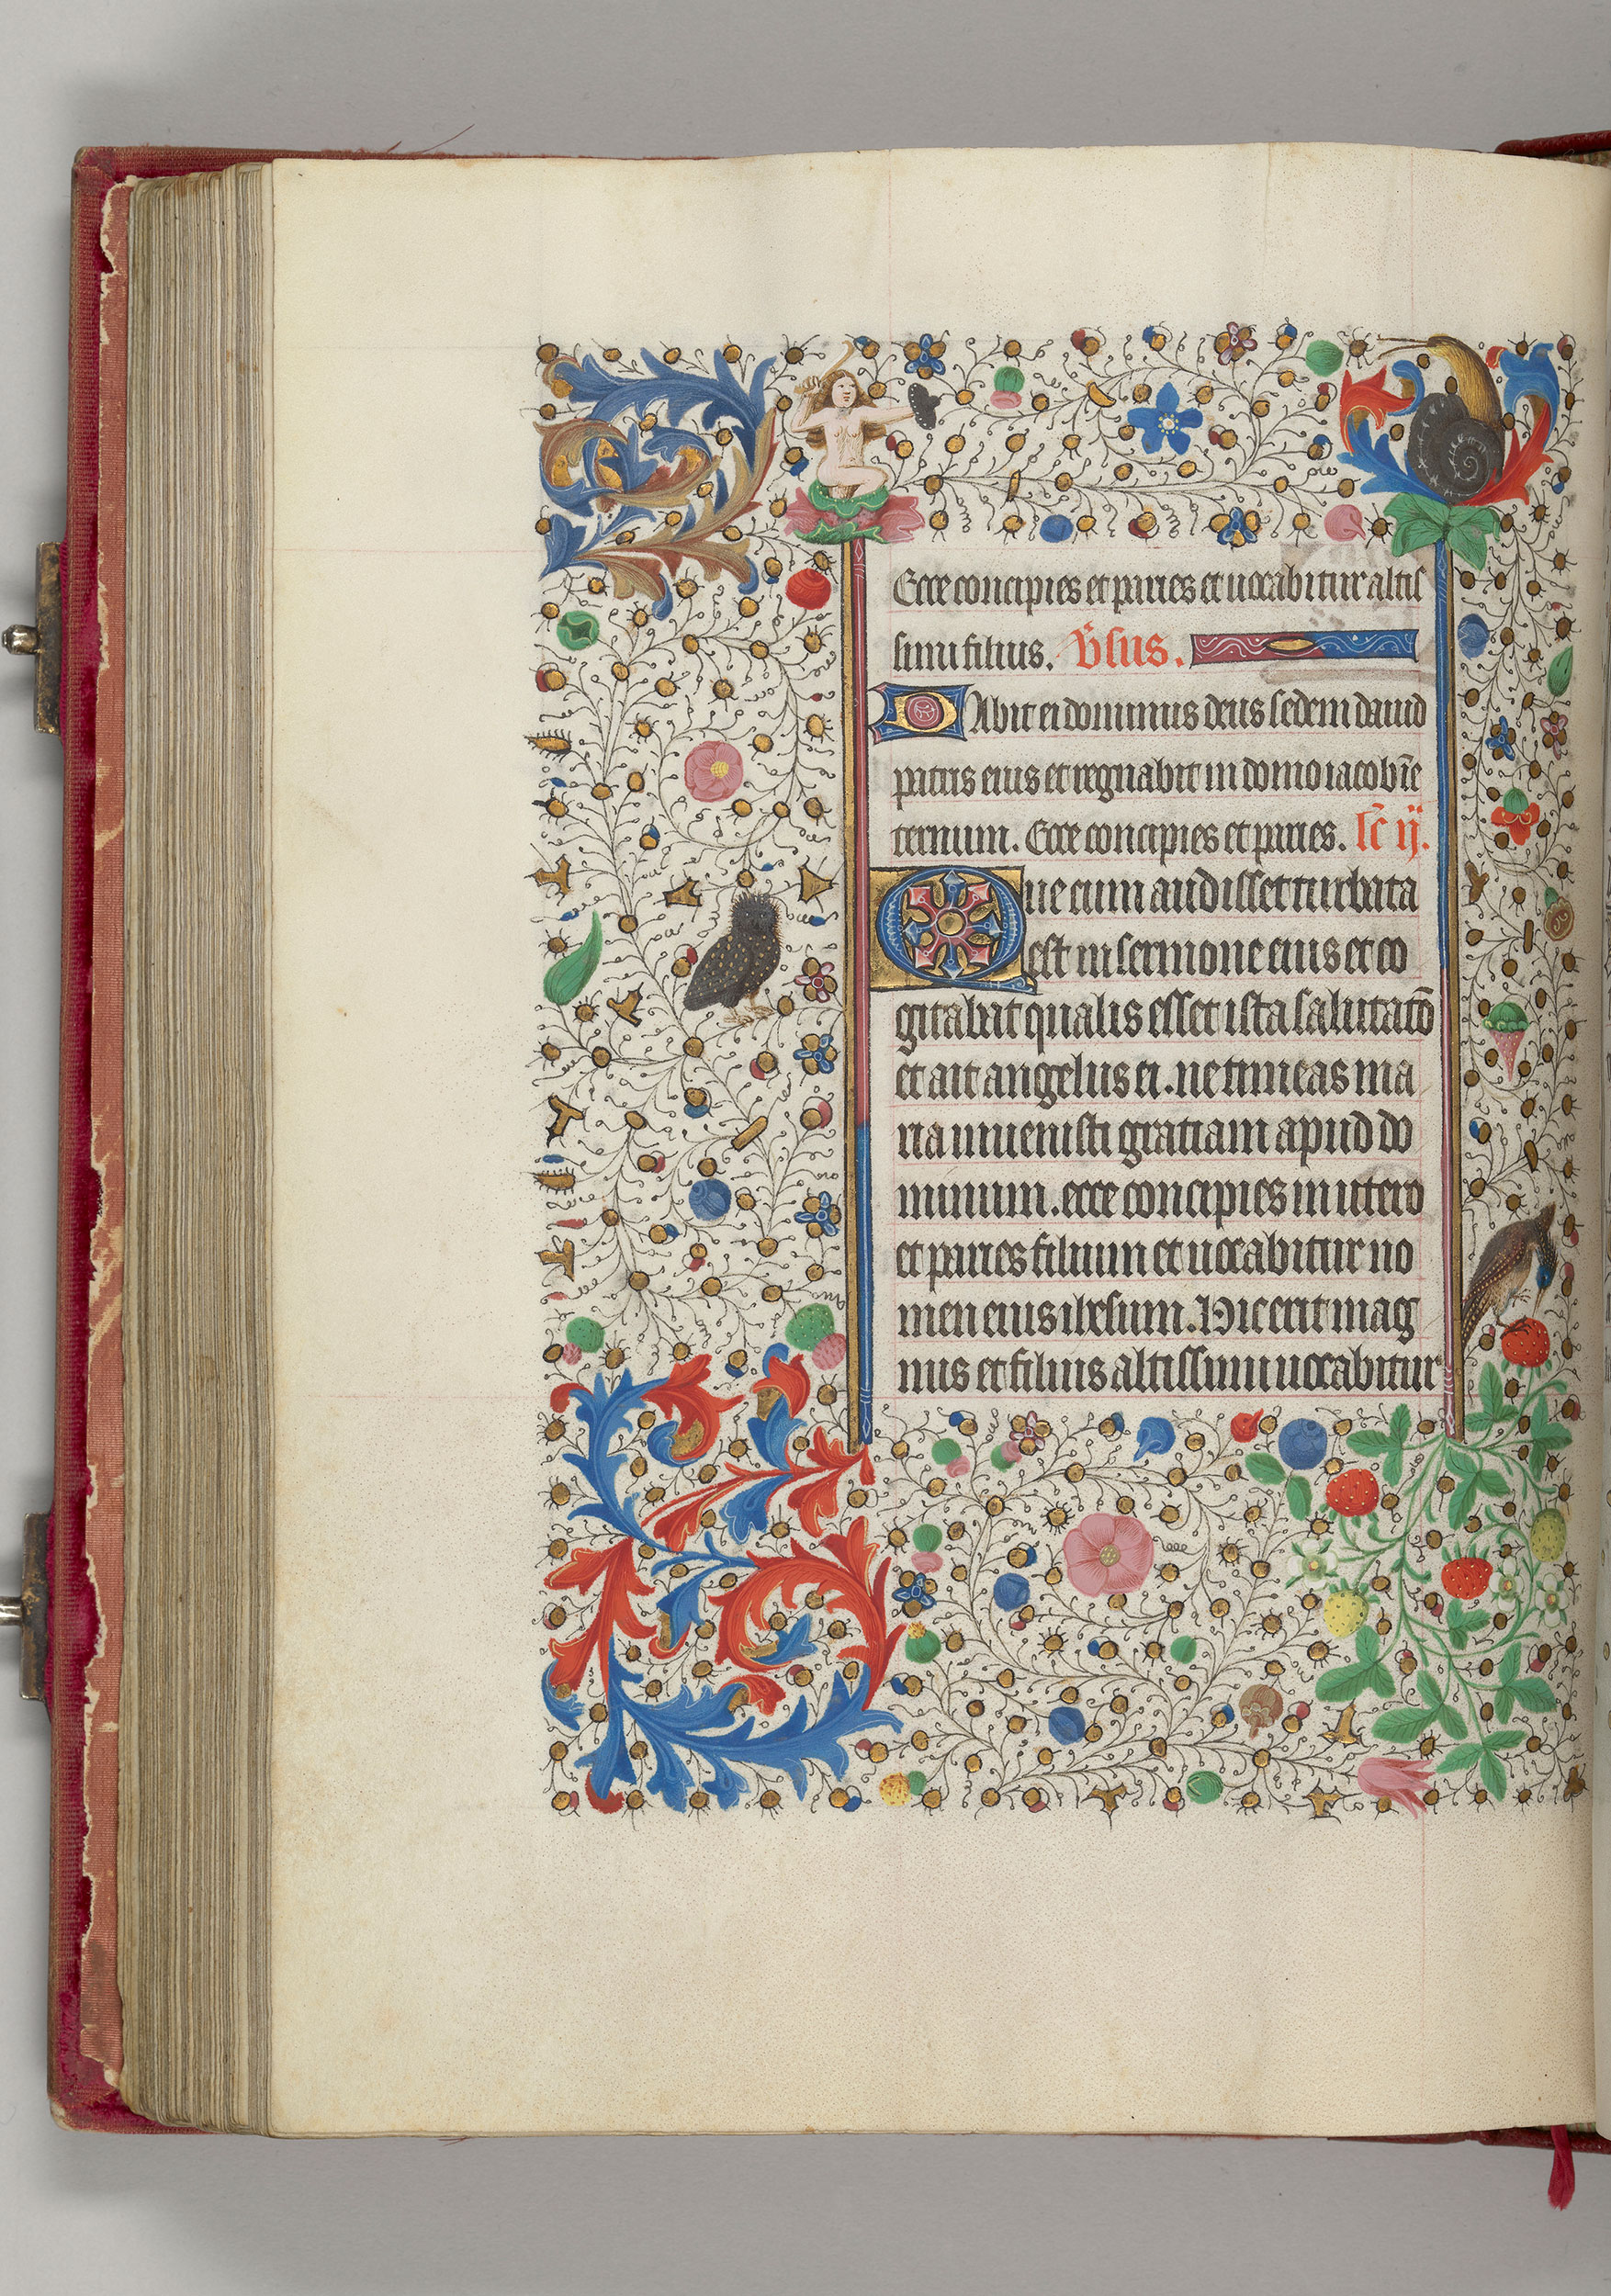 Ecce concipies et paries et uocabitur altis
simi filius. v̄sus.
Dabit ei dominus deus sedem dauid
patris eius et regnabit in domo iacob ī e
ternum. Ecce concipies et paries. lc̄ ij.
Que cum audisset turbata
est in sermone eius et co
gitabat qualis esset ista salutatō
et ait angelus ei. ne timeas ma
ria inuenisti gratiam apud do
minum. ecce concipies in utero
et paries filium et uocabitur no
men eius ihesum. Hic erit mag
nus et filius altissimi uocabitur